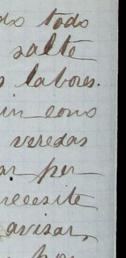 do todo
salte
s labores.
in como
veredas
ar per
necesite
avisar,